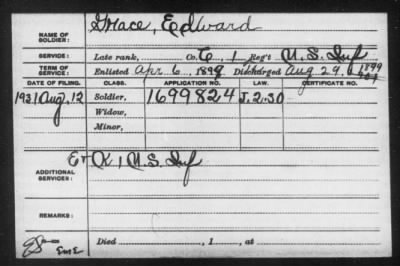 NAME OF SOLDIER: Grace, Edward
SERVICE: Late rank, Co. C, 1 Reg't U.S. Inf
TERM OF SERVICE: Enlisted Apr 6, 1898 Discharged Aug 29, 1899
DATE OF FILING. CLASS. APPLICATION NO. LAW. CERTIFICATE NO.
1931 Aug, 12 Soldier, 1699824 J.2.30
Widow,
Minor,
ADDITIONAL SERVICES: K 1 U.S. Inf
REMARKS:
Died , 1 , at